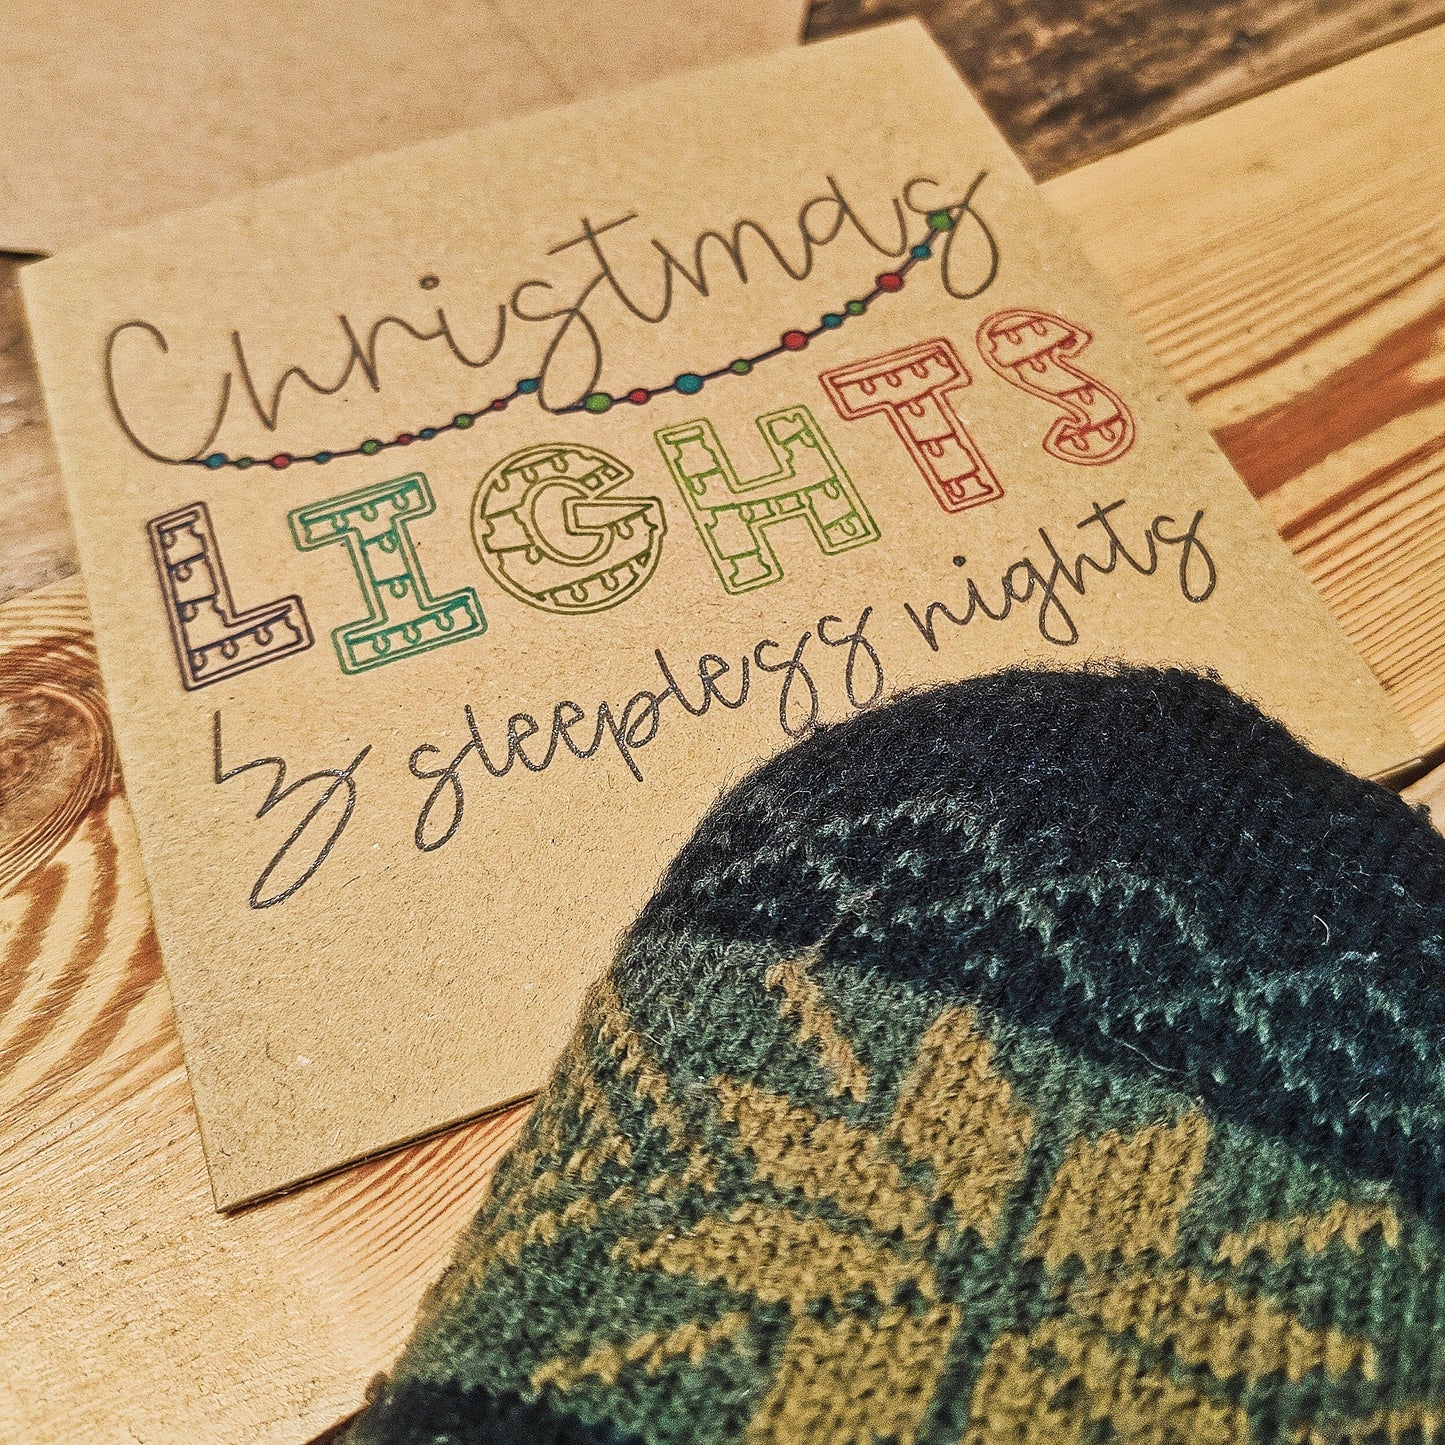 Christmas
LIGHTS
& sleepless nights